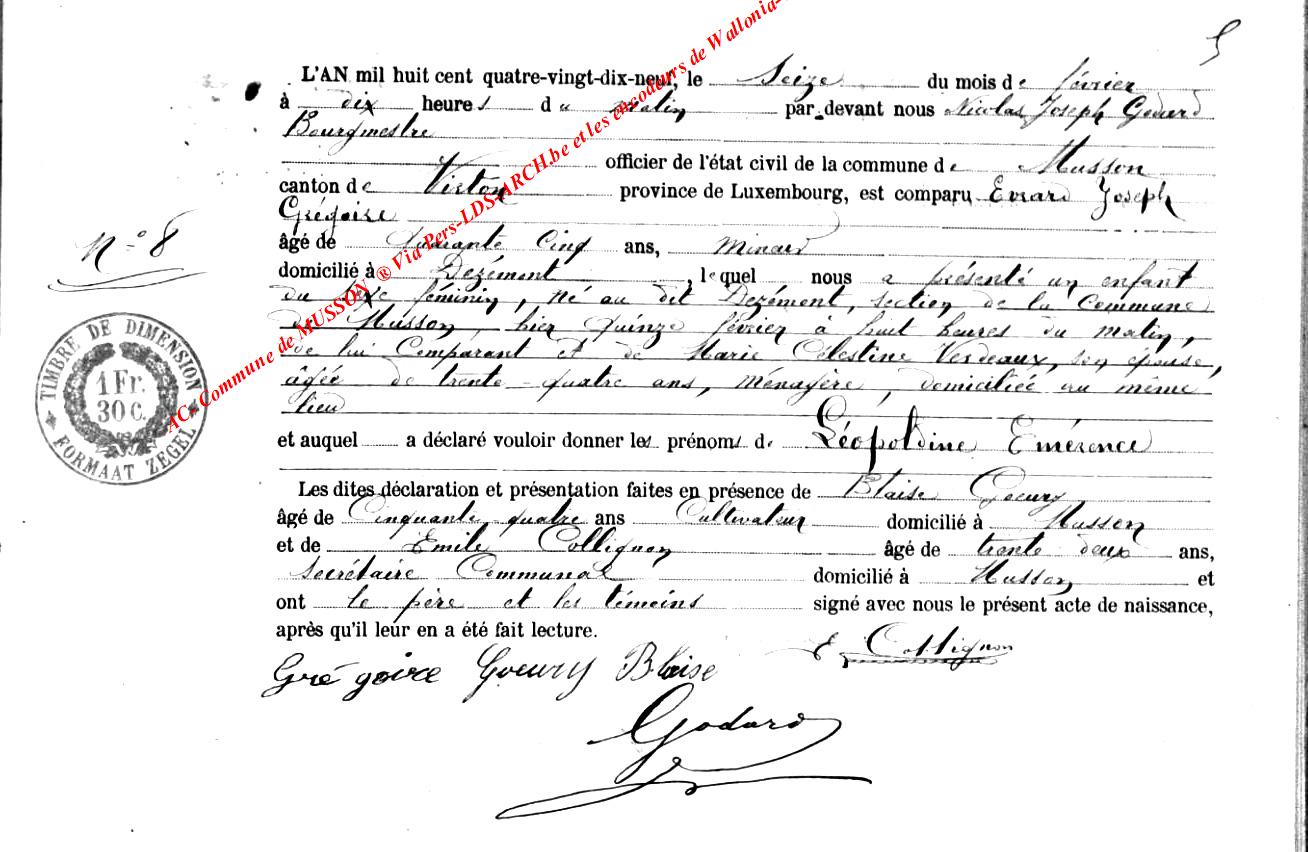 5
L'AN mil huit cent quatre-vingt-dix-neuf, le Seize du mois de février
à dix heures du Matin par devant nous Nicolas Joseph Godard
Bourgmestre
officier de l'état civil de la commune de Musson
canton de Virton province de Luxembourg, est comparu Evrard Joseph
Grégoire
N° 8
âgé de Quarante Cinq ans, Mineur
domicilié à Dezémont, lequel nous a présenté un enfant
du sexe féminin, né au dit Dezémont, section de la Commune
de Musson, hier quinze février à huit heures du matin,
de lui Comparant et de Marie Célestine Verdeaux, son épouse,
âgée de trente-quatre ans, Ménagère, domiciliée au même
lieu
et auquel a déclaré vouloir donner les prénoms de Léopoldine Emérence
Les dites déclaration et présentation faites en présence de Blaise Goeury
âgé de Cinquante quatre ans Cultivateur domicilié à Musson
et de Emile Collignon âgé de trente deux ans,
Secrétaire Communal domicilié à Musson et
ont le père et les témoins signé avec nous le présent acte de naissance,
après qu'il leur en a été fait lecture.
E Collignon
Grégoire Goeury Blaise
Godard
TIMBRE DE DIMENSION
1 Fr.
30 C.
FORMAAT ZEGEL
AC. Commune de MUSSON ® Via Pers-LDS-ARCH.be et les encodeurs de Wallonia-